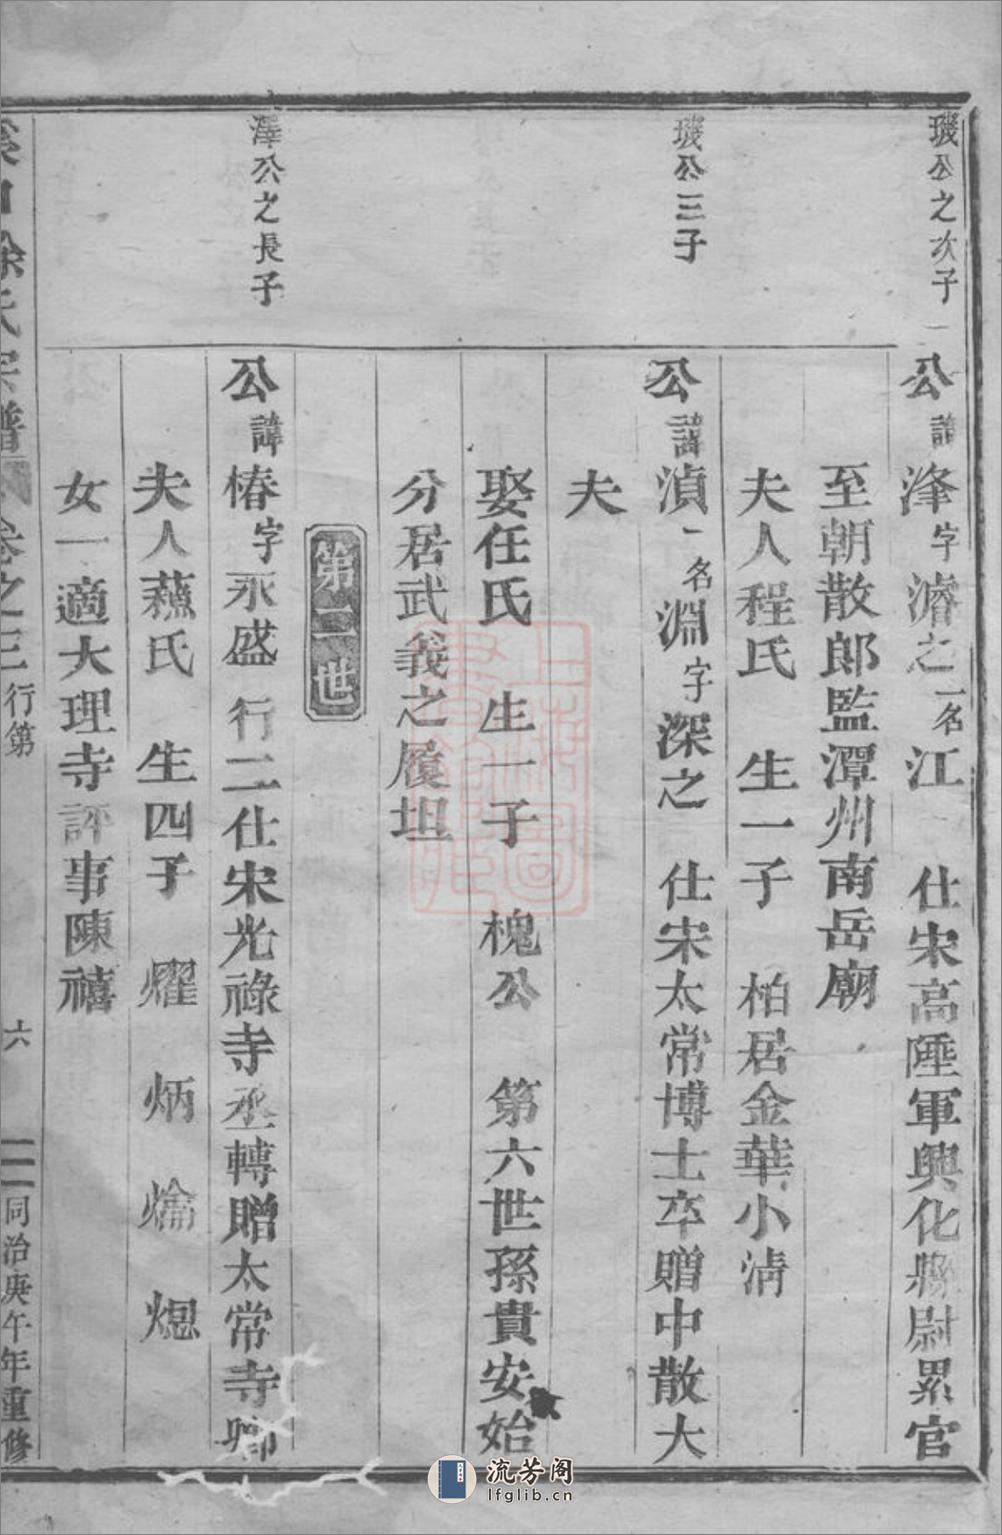 璣公之次子
公諱浲字濬之一名江 仕宋高陲軍興化縣尉累官
至朝散郎監潭州南岳廟
夫人程氏 生一子 柏居金華小淸
璣公三子
公諱湞一名淵字深之 仕宋太常博士卒贈中散大
夫
娶任氏 生一子 槐公 第六世孫貴安始
分居武義之履坦
第二世
澤公之長子
公諱椿字永盛 行二仕宋光祿寺丞轉贈太常寺卿
夫人蘓氏 生四子 燿 炳 爚 熄
女一適大理寺評事陳禧
徐氏宗譜 卷之三 行第 六 同治庚午年重修
流芳阁
lfglib.cn